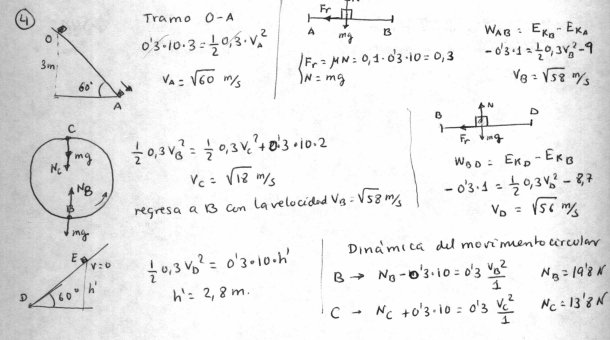 4
Tramo O-A
0'3·10·3 = 1/2 0,3·V_A²
V_A = √60 m/s
O
3m
60°
A
N
Fr
A mg B
{Fr = μN = 0,1·0'3·10 = 0,3
N = mg
W_AB = E_KB - E_KA
-0'3·1 = 1/2 0,3V_B² - 9
V_B = √58 m/s
C
mg
N_c
N_B
B
mg
1/2 0,3V_B² = 1/2 0,3V_c² + 0'3·10·2
V_C = √18 m/s
regresa a B con la velocidad V_B = √58 m/s
N
B D
Fr mg
W_BD = E_KD - E_KB
-0'3·1 = 1/2 0,3V_D² - 8,7
V_D = √56 m/s
E
V=0
h'
D 60°
1/2 0,3V_D² = 0'3·10·h'
h' = 2,8 m.
Dinámica del movimiento circular
B → N_B - 0'3·10 = 0'3 V_B²/1 N_B = 19'8 N
C → N_C + 0'3·10 = 0'3 V_C²/1 N_C = 13'8 N